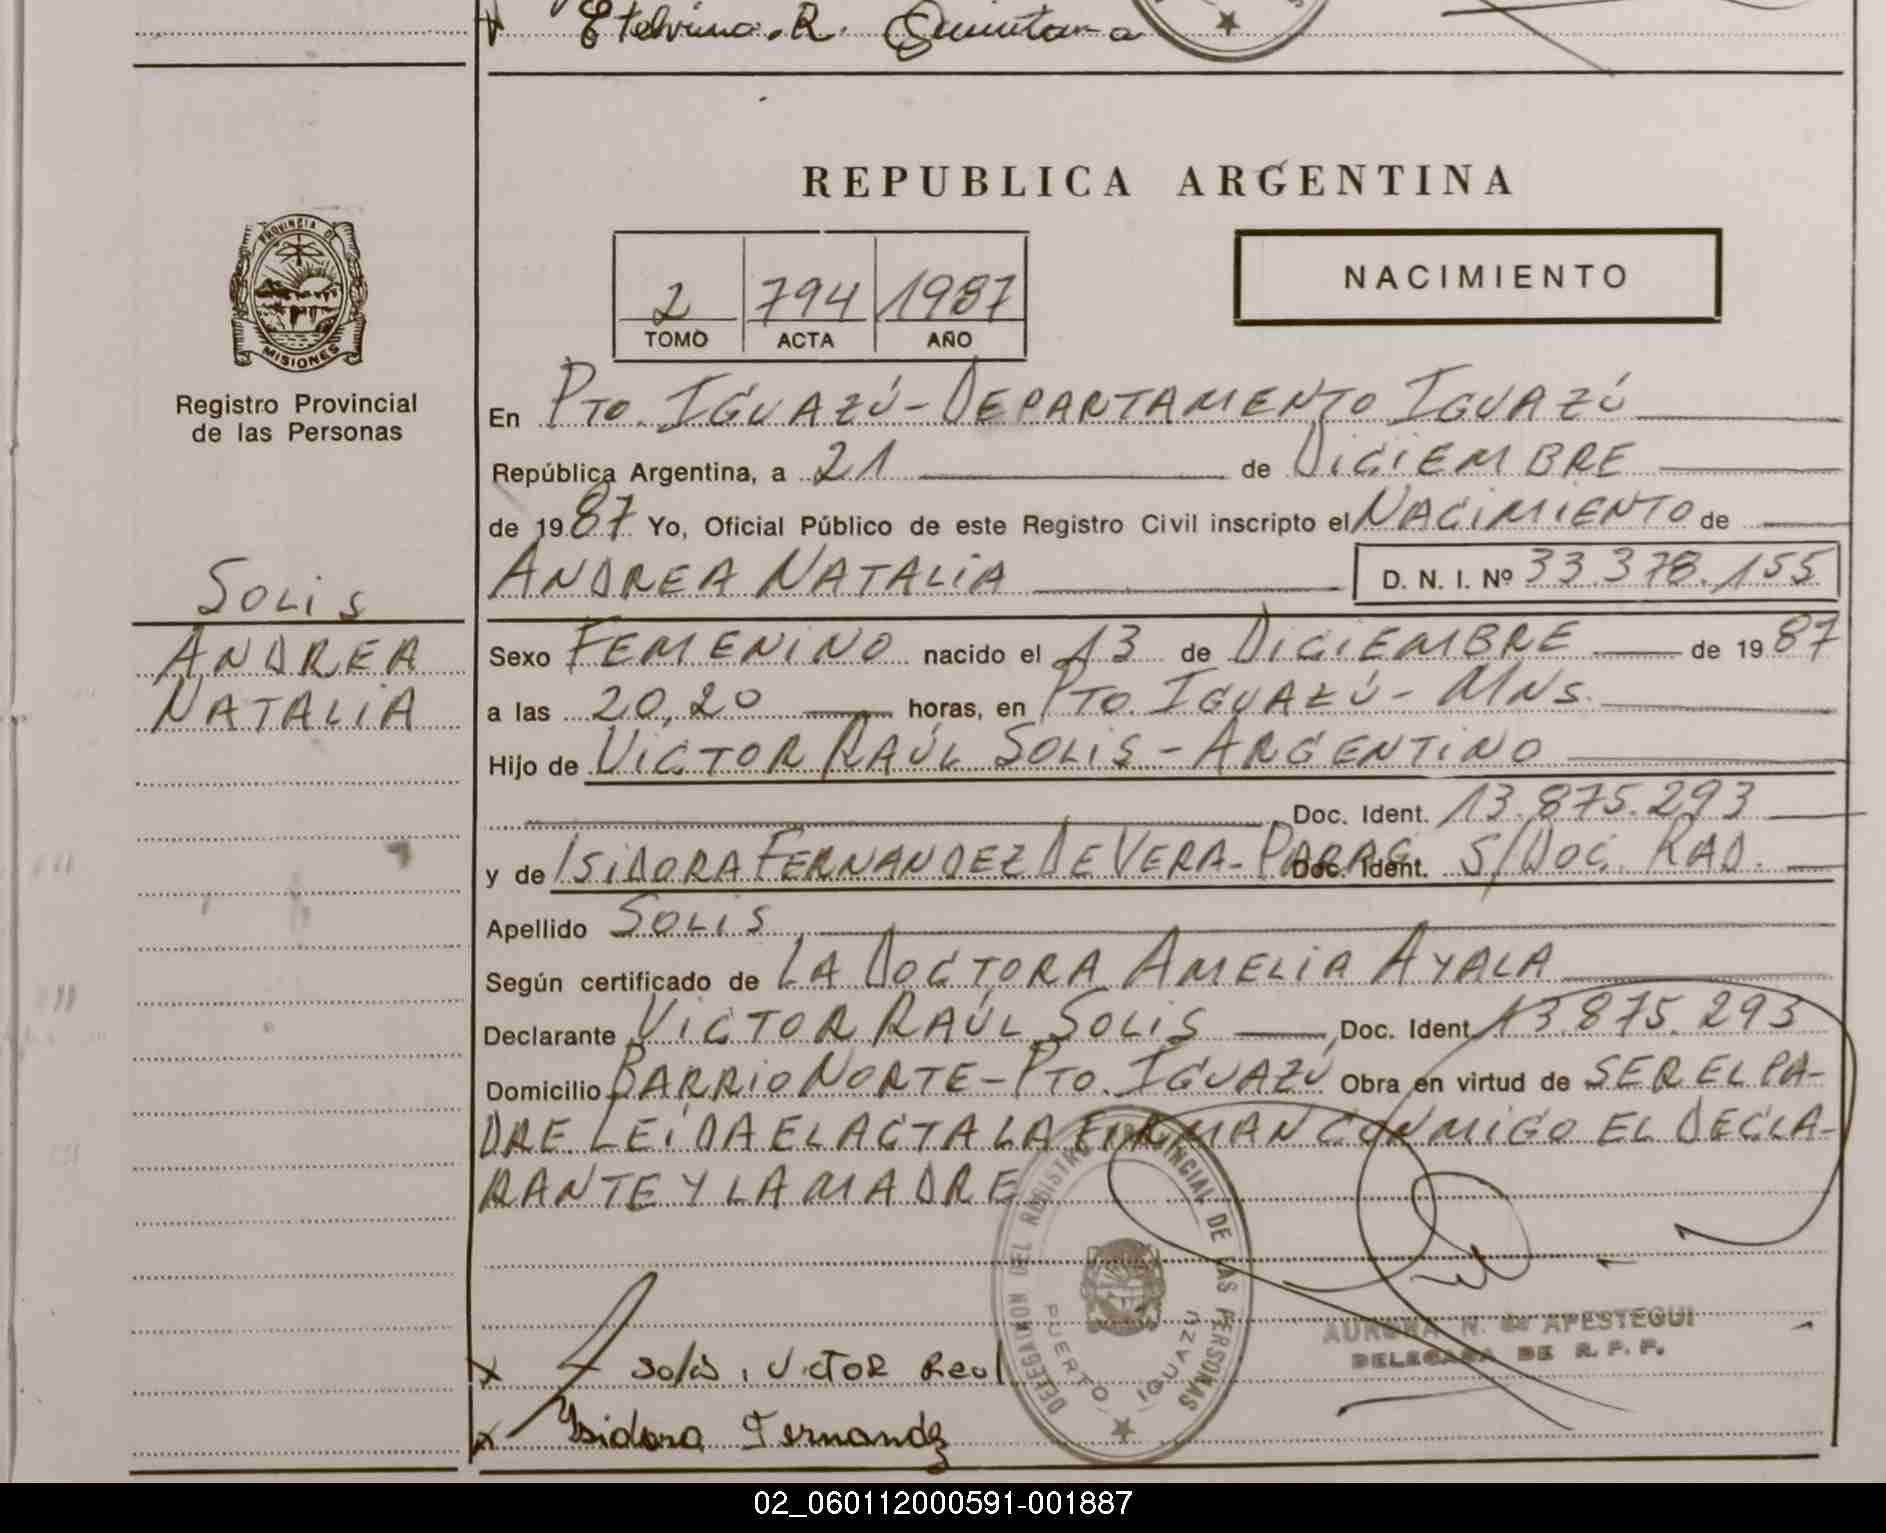 Etelvina. R. Quintana
REPUBLICA ARGENTINA
PROVINCIA DE
MISIONES
Registro Provincial
de las Personas
2 794 1987
TOMO ACTA AÑO
NACIMIENTO
En PTO. IGUAZÚ - DEPARTAMENTO IGUAZÚ
República Argentina, a 21 de DICIEMBRE
de 1987 Yo, Oficial Público de este Registro Civil inscripto el NACIMIENTO de
ANDREA NATALIA D. N. I. Nº 33.378.155
SOLIS
ANDREA
NATALIA
Sexo FEMENINO nacido el 13 de DICIEMBRE de 1987
a las 20,20 horas, en PTO. IGUAZÚ - MNS.
Hijo de VICTOR RAÚL SOLIS - ARGENTINO
Doc. Ident. 13.875.293
y de ISIDORA FERNANDEZ DE VERA - PARAG. Doc. Ident. S/DOC. RAD.
Apellido SOLIS
Según certificado de LA DOCTORA AMELIA AYALA
Declarante VICTOR RAÚL SOLIS Doc. Ident. 13.875.293
Domicilio BARRIO NORTE - PTO. IGUAZÚ Obra en virtud de SER EL PA-
DRE. LEÍDA EL ACTA LA FIRMAN CONMIGO EL DECLA-
RANTE Y LA MADRE
DELEGACION DEL REGISTRO PROVINCIAL DE LAS PERSONAS
PUERTO IGUAZU
AURORA N. de APESTEGUI
DELEGADA DE R. P. P.
x Solis, Victor Raul
x Isidora Fernandez
02_060112000591-001887